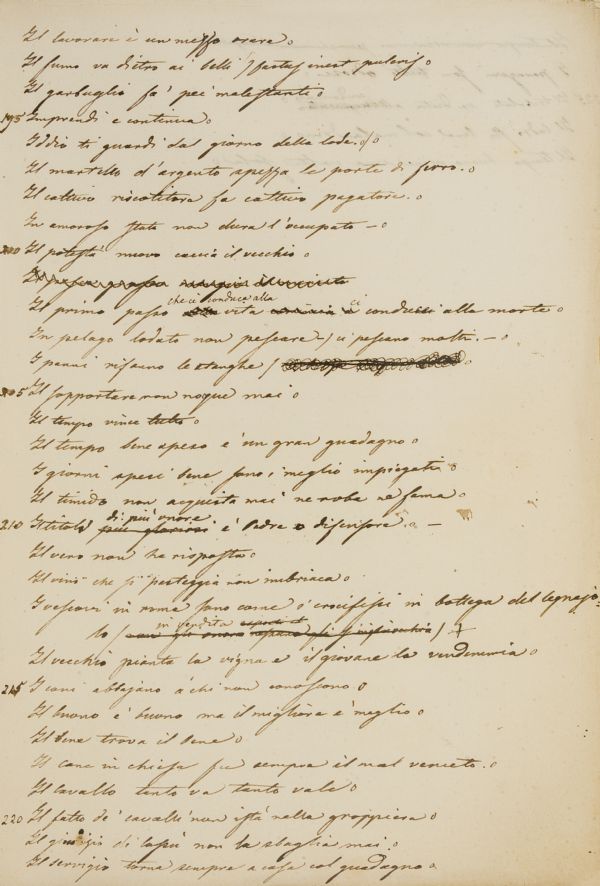 Il lavorare è un mezzo orare
Il fumo va dietro ai belli
Il garbuglio fa' pei malestanti
195 Imprendi e continua
Iddio ti guardi dal giorno della lode.
Il martello d'argento spezza le porte di ferro.
Il cattivo riscotitore fa cattivo pagatore.
In amoroso stato non dura l'occupato –
200 Il potestà nuovo caccia il vecchio
che ci conduce alla ci
Il primo passo vita conduce alla morte
In pelago lodato non pescare ci pescano molti. –
I panni rifanno le stanghe
205 Il sopportare non noque mai
Il tempo vince tutto
Il tempo bene speso e' un gran guadagno
I giorni spesi bene sono i meglio impiegati
Il timido non acquista mai ne roba ne fama
di più onore
210 Il titolo è Padre e difensore. –
Il vero non ha risposta
Il vino che si pasteggia non imbriaca
I vescovi in roma sono come i crocifissi in bottega del legnajo-
in vendita
lo
Il vecchio pianta la vigna e il giovane la vendemmia
215 I cani abbajano a chi non conoscono
Il buono e' buono ma il migliore e' meglio
Il bene trova il bene
Il cane in chiesa fu sempre il mal venuto.
Il cavallo tanto va tanto vale
220 Il fatto de' cavalli non istà nella groppiera
Il giudizio di lassù non la sbaglia mai
Il servigio torna sempre a casa col guadagno